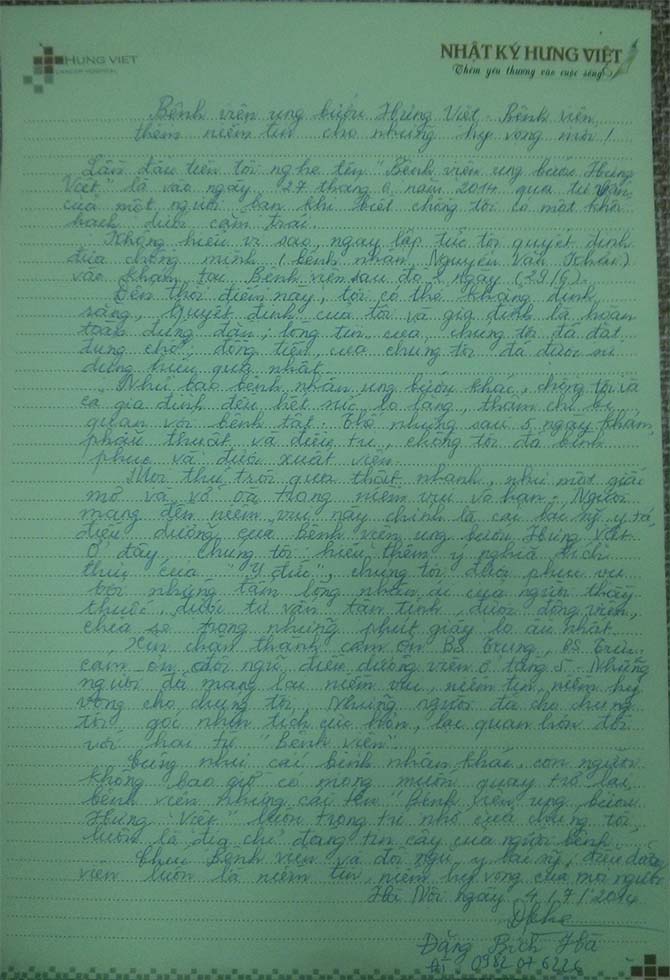 HUNG VIET
CANCER HOSPITAL
NHẬT KÝ HƯNG VIỆT
Thêm yêu thương vào cuộc sống
Bệnh viện ung bướu Hưng Việt - Bệnh viện
thêm niềm tin cho những hy vọng mới!
Lần đầu tiên tôi nghe tên "Bệnh viện ung bướu Hưng
Việt" là vào ngày 27 tháng 6 năm 2014 qua tư vấn
của một người bạn khi biết chồng tôi có một khối
hạch dưới cằm trái.
Không hiểu vì sao, ngay lập tức tôi quyết định
đưa chồng mình (bệnh nhân Nguyễn Văn)
vào khám tại Bệnh viện sau đó 2 ngày (29/6).
Đến thời điểm này, tôi có thể khẳng định
rằng, quyết định của tôi và gia đình là hoàn
toàn đúng đắn; lòng tin của chúng tôi đã đặt
đúng chỗ; đồng tiền của chúng tôi đã được sử
dụng hiệu quả nhất.
Như bao bệnh nhân ung bướu khác, chồng tôi và
cả gia đình đều hết sức lo lắng, thậm chí bi
quan với bệnh tật. Thế nhưng sau 5 ngày khám,
phẫu thuật và điều trị, chồng tôi đã bình
phục và được xuất viện.
Mọi thứ trôi qua thật nhanh, như một giấc
mơ và vỡ òa trong niềm vui vô hạn. Người
mang đến niềm vui này chính là các bác sỹ, y tá,
điều dưỡng của Bệnh viện ung bướu Hưng Việt.
Ở đây chúng tôi hiểu thêm ý nghĩa đích
thực của "Y đức", chúng tôi được phục vụ
bởi những tấm lòng nhân ái của người thầy
thuốc, được tư vấn tận tình, được động viên,
chia sẻ trong những phút giây lo âu nhất.
Xin chân thành cảm ơn BS Trung, BS
cảm ơn đội ngũ điều dưỡng viên ở tầng 5. Những
người đã mang lại niềm vui, niềm tin, niềm hy
vọng cho chúng tôi. Những người đã cho chúng
tôi góc nhìn tích cực hơn, lạc quan hơn đối
với hai từ "Bệnh viện".
Cũng như các bệnh nhân khác, con người
không bao giờ có mong muốn quay trở lại
bệnh viện nhưng cái tên "Bệnh viện ung bướu
Hưng Việt" luôn trong trí nhớ của chúng tôi,
luôn là địa chỉ đáng tin cậy của người bệnh.
Chúc Bệnh viện và đội ngũ y bác sỹ, điều dưỡng
viên luôn là niềm tin, niềm hy vọng của mọi người.
Hà Nội ngày 4/7/2014
Đặng Bích Hà
ĐT 0982 07 6226